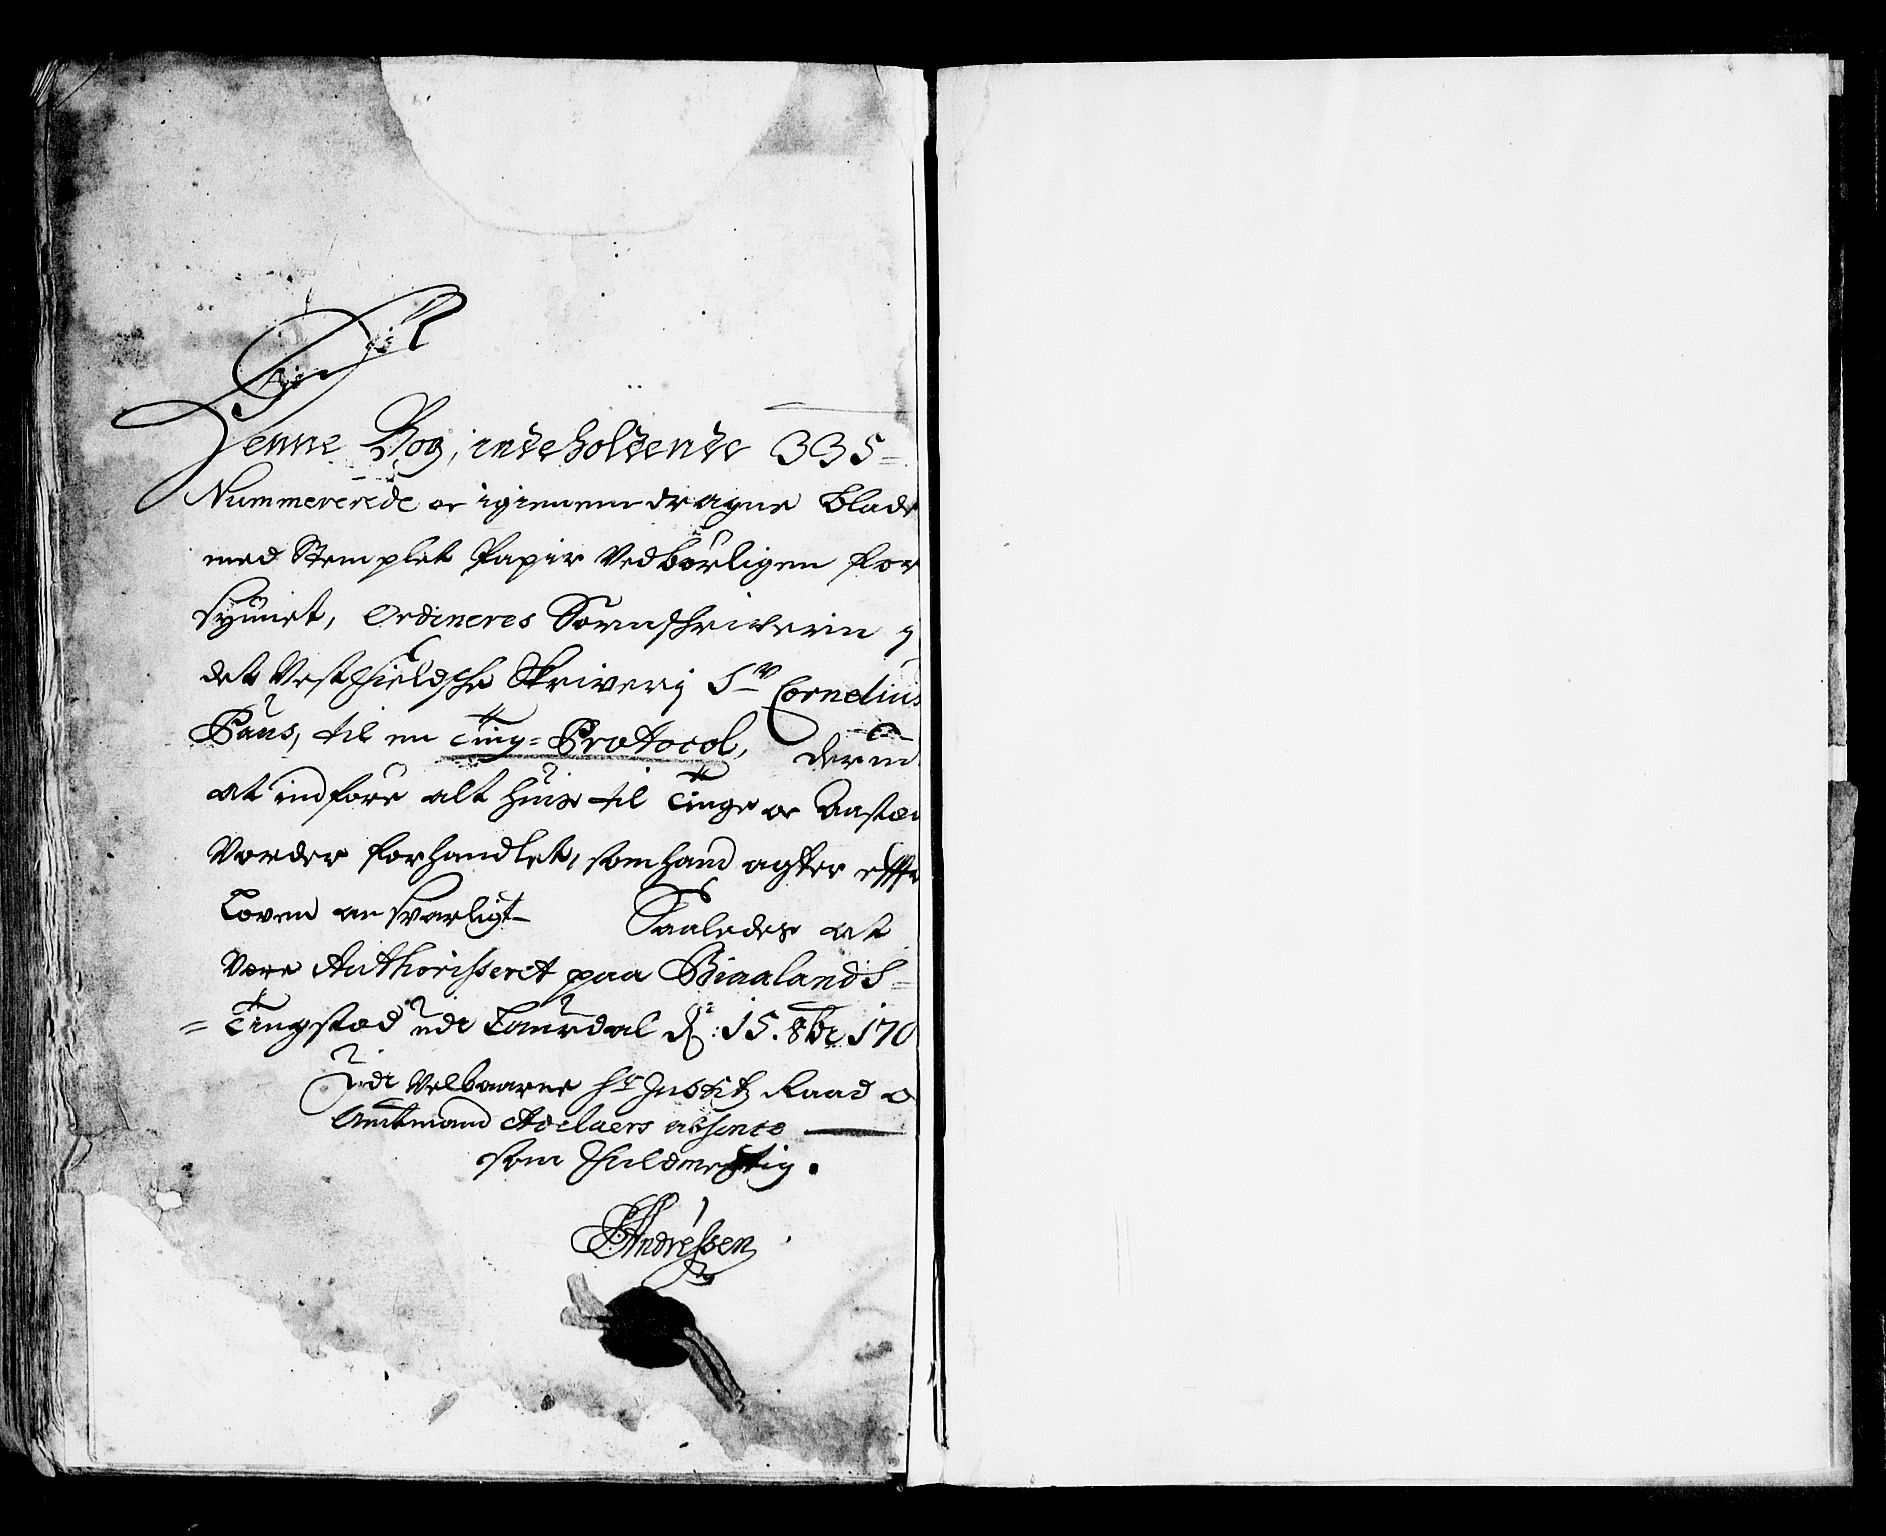 Denne Bog, indeholdende 335=
Nummererede oc igiennemdragne blade
med Stemplet Papir Vedbørligen for
syunet, Ordineres Sorenschriveren y
det Vestfieldsche Skriverij Sr Cornelius
Paus, til en Ting=Protocol, derud
at indføre alt huis til Tinge oc Aastæd
Vorder forhandlet, som hand agter effter
Loven ansvarligt Saaledes at
Være Authorisseret paa Biaalands=
=Tingstæd udi Laurdal d: 15. 8br 170
Udi Velbaarne Hr Justitz Raad o
Amtmand Adelaers absence
som Fuldmegtig.
Andrèssen